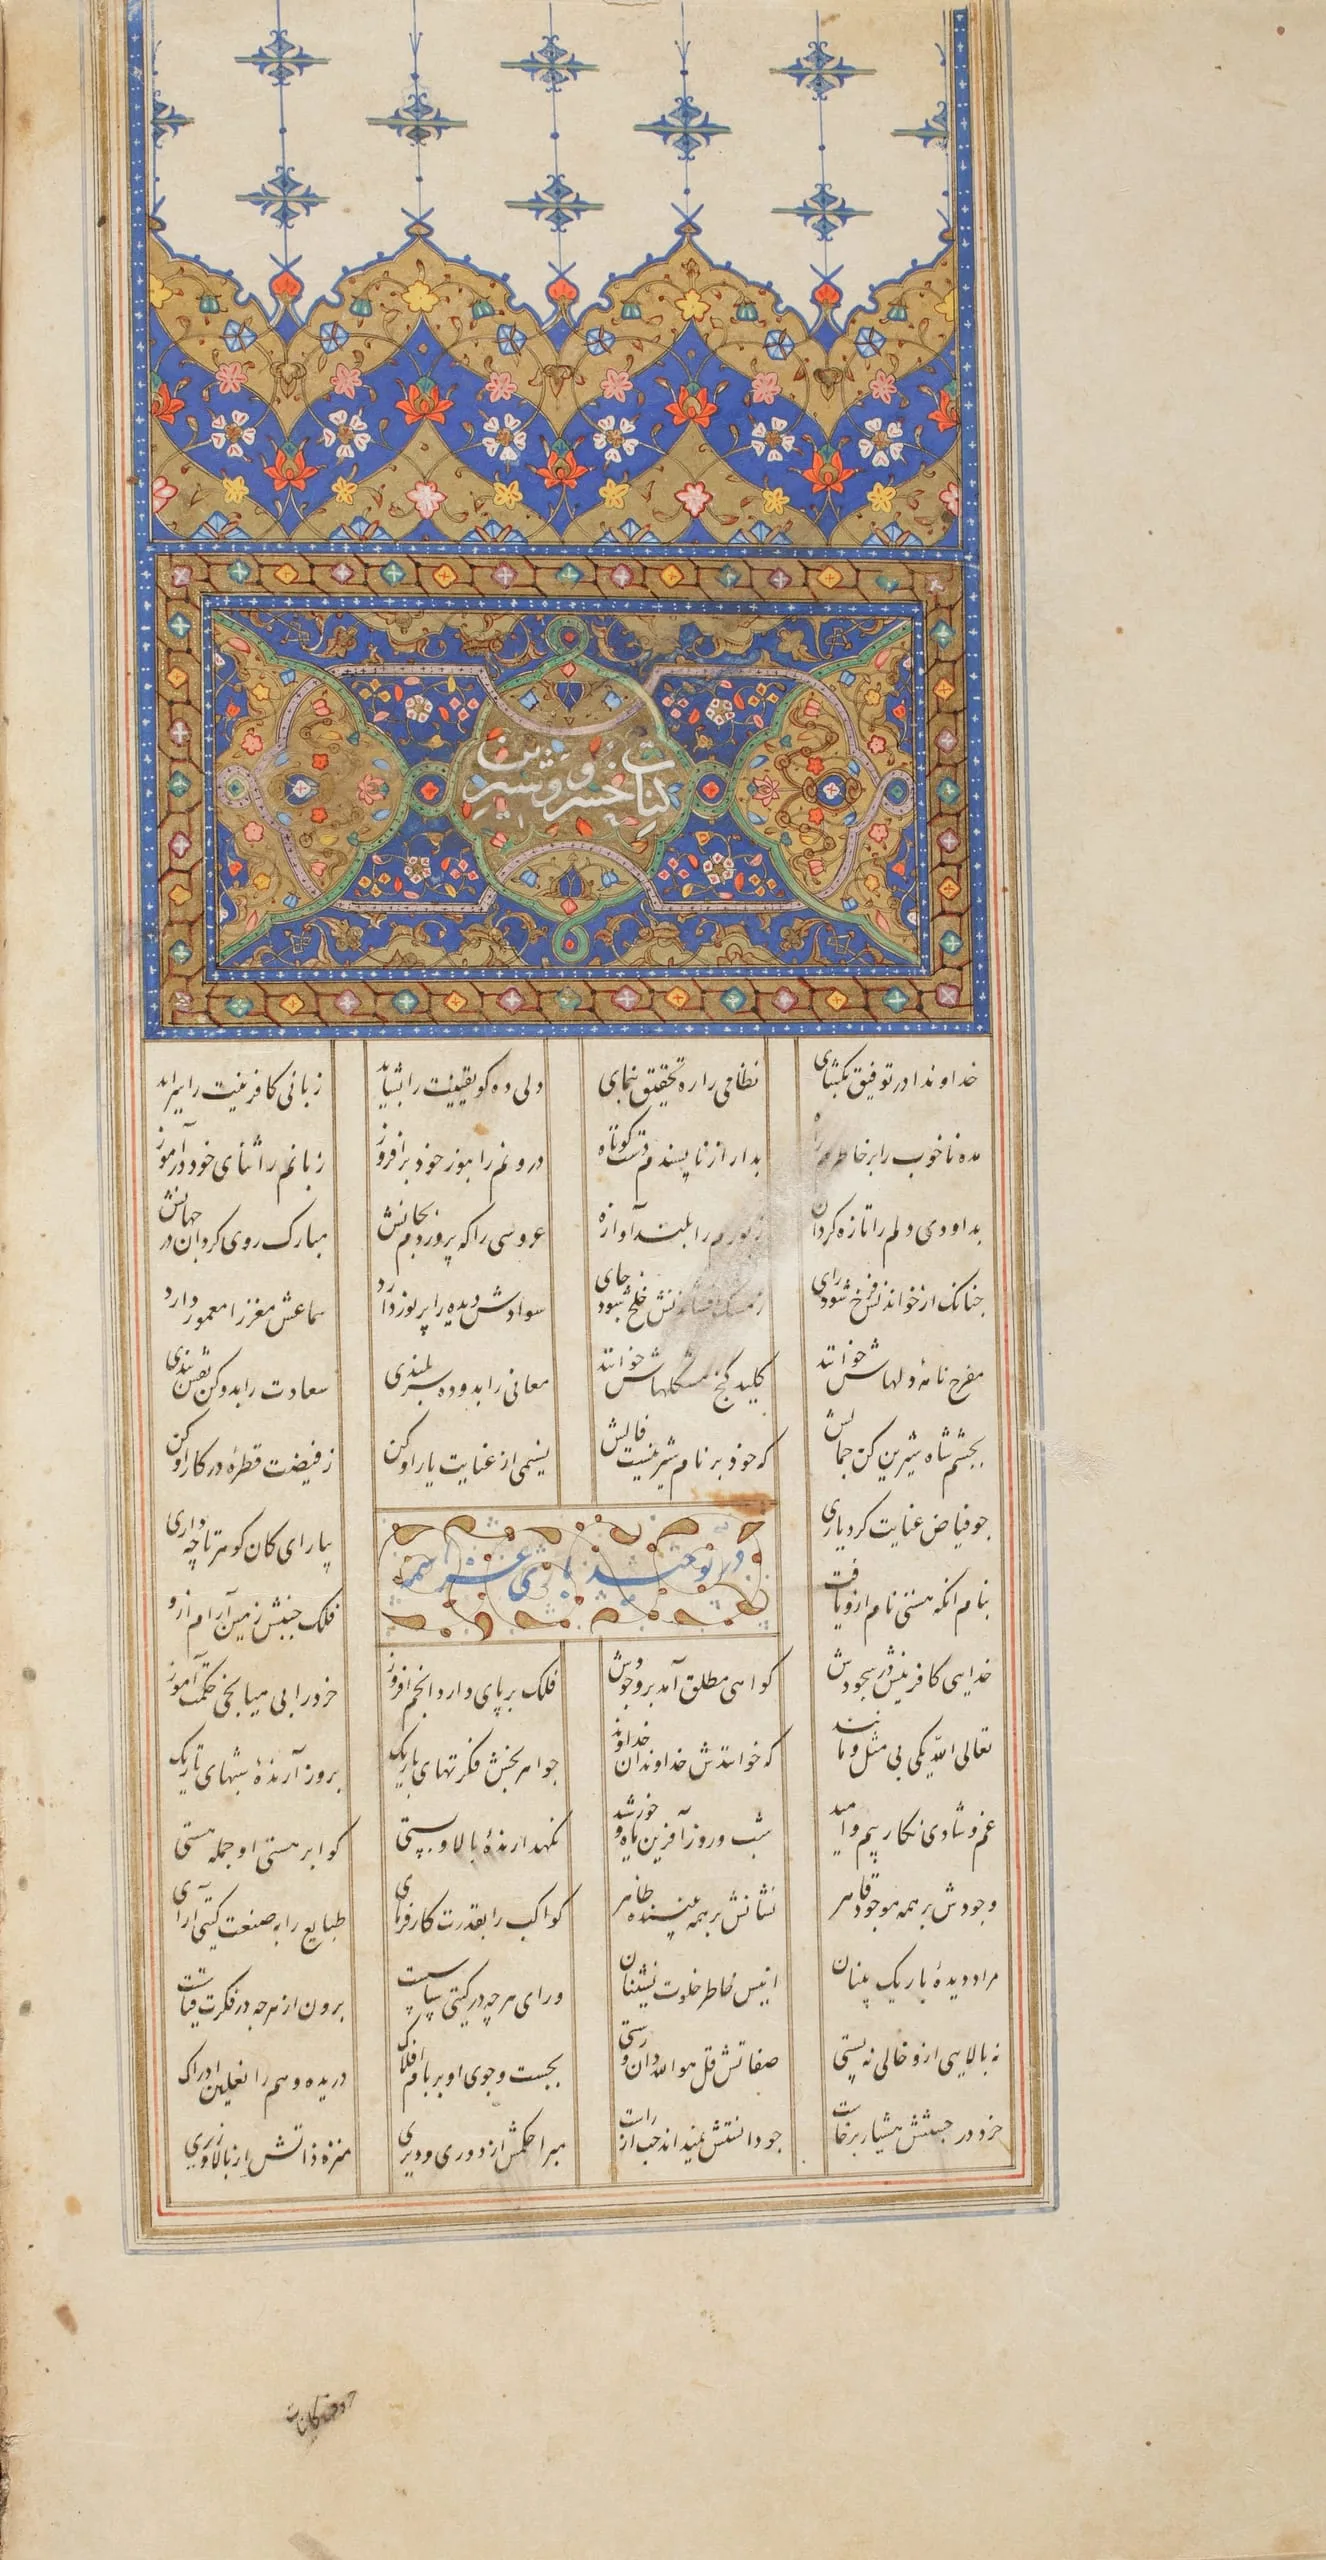 کتاب خسرو و شیرین
خداوندا در توفیق بگشای نظامی را ره تحقیق بنمای دلی ده کو یقینت را بشاید زبانی کافرینت را سراید
مده ناخوب را بر خاطرم راه بدار از ناپسندم دست کوتاه درونم را بنور خود برافروز زبانم را ثنای خود درآموز
بداودی دلم را تازه گردان زبورم را بلند آوازه عروسی را که پروردم بجانش مبارک روی گردان در جهانش
چنانک از خواندنش فرخ شود رای ز مشک افشاندنش خلخ شود جای سوادش دیده را پرنور دارد سماعش مغز را معمور دارد
مفرح نامهٔ دلهاش خوانند کلید گنج مشکلهاش خوانند معانی را بدو ده سربلندی سعادت را بدو کن نقش بندی
بچشم شاه شیرین کن جمالش که خود بر نام شیرینست فالش نسیمی از عنایت یار او کن ز فیضت قطرهٔ در کار او کن
چو فیاض عنایت کرد یاری بیار ای کان گوهر تا چه داری
در توحید باری عز اسمه
بنام آنکه هستی نام ازو یافت فلک جنبش زمین آرام ازو
خدایی کافرینش در سجودش گواهی مطلق آمد بر وجودش فلک برپای دار و انجم افروز خرد را بی میانجی حکمت آموز
تعالی الله یکی بی مثل و مانند که خوانندش خداوندان خداوند جواهر بخش فکرتهای باریک بروز آرندهٔ شبهای تاریک
غم و شادی نگار و بیم و امید شب و روز آفرین ماه و خورشید نگهدارندهٔ بالا و پستی گوا بر هستی او جمله هستی
وجودش بر همه موجود قاهر نشانش بر همه بیننده ظاهر کواکب را بقدرت کارفرمای طبایع را بصنعت گیتی آرای
مراد دیدهٔ باریک بینان انیس خاطر خلوت نشینان ورای هر چه در گیتی برون از هر چه در فکرت قیاست
نه بالایی ازو خالی نه پستی صفاتش قل هو الله دان و رستی بجست و جوی او بر بام افلاک دریده وهم را نعلین ادراک
خرد در جستنش هشیار برخاست چو دانستش نمیداند چپ از راست مبرا حکمش از دوری و دیری منزه ذاتش از بالا و زیری